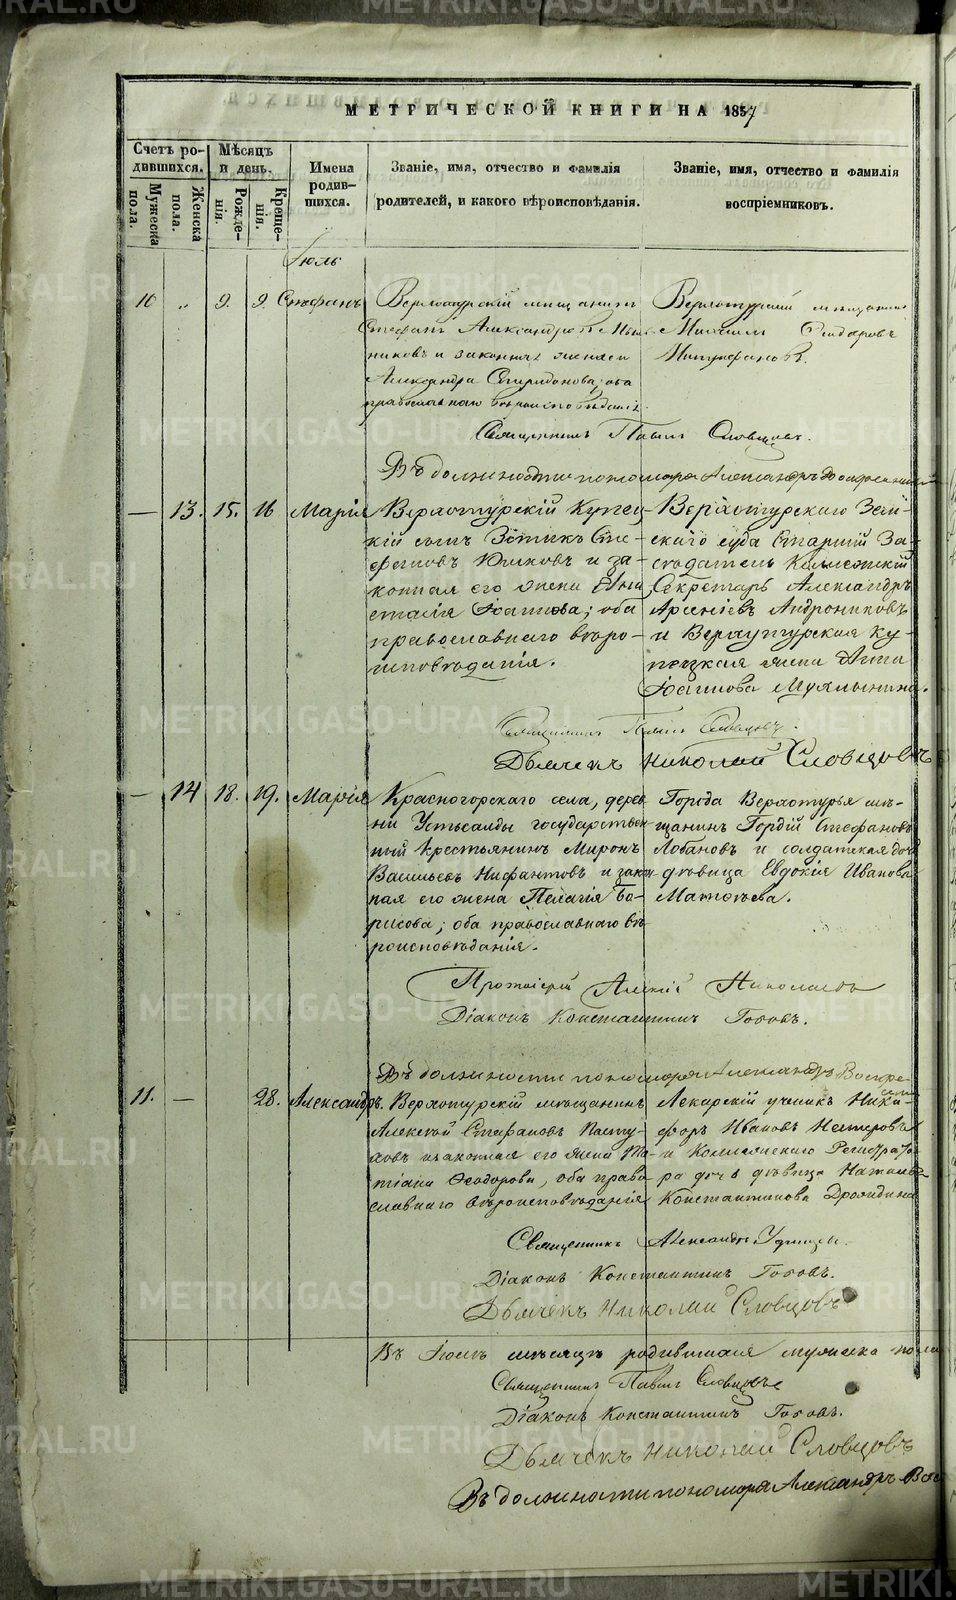 МЕТРИЧЕСКОЙ КНИГИ НА 1857
Счетъ ро-
дившихся.
Мужеска
пола.
Женска
пола.
Мѣсяцъ
и день.
Рожде-
нія.
Креще-
нія.
Имена
родив-
шихся.
Званіе, имя, отчество и фамилія
родителей, и какого вѣроисповѣданія.
Званіе, имя, отчество и фамилія
воспріемниковъ.
Іюль
10 „ 9. 9 Стефанъ
Верхотурскій мѣщанинъ
Стефанъ Александровъ
никовъ и законная жена его
Александра Спиридонова, оба
православнаго вѣроисповѣданія.
Верхотурскій мѣщанинъ
Михаилъ
Митрофановъ.
Священникъ Павелъ Словцовъ.
Въ должности пономаря Александръ
— 13. 15. 16 Марія
Верхотурскій Купец-
кій сынъ Сте-
фановъ и за-
конная его жена Ана-
стасія Іоаннова; оба
православнаго вѣро-
исповѣданія.
Верхотурскаго Зем-
скаго суда Старшій За-
сѣдатель Коллежскій
Секретарь Александръ
Арсеніевъ Андрониковъ
и Верхотурская ку-
пецкая жена Анна
Іоаннова
Священникъ Павелъ Словцовъ.
Дьячекъ Николай Словцовъ
— 14 18. 19. Марія
Красногорскаго села, дерев
ни Устьсалды государствен
ный Крестьянинъ Миронъ
Васильевъ Нифантовъ и закон
ная его жена Пелагія Бо-
рисова; оба православнаго вѣ
роисповѣданія.
Города Верхотурья мѣ-
щанинъ Гордій Стефановъ
Лобановъ и солдатская дочь
дѣвица Евдокія Иванова
Матвѣева.
Протоіерей Алексій Николаевъ
Діаконъ Константинъ Поповъ.
Въ должности пономаря Александръ Воскре-
11. — 28. Александръ.
Верхотурскій мѣщанинъ
Алексѣй Стефановъ Пасту-
ховъ и законная его жена Та-
тіана Ѳеодорова, оба право
славнаго вѣроисповѣданія
Лекарскій ученикъ Ники-
форъ Ивановъ Нестеровъ
и Коллежскаго Регистрато-
ра дочь дѣвица Наталья
Константинова
Священникъ Александръ
Діаконъ Константинъ Поповъ.
Дьячекъ Николай Словцовъ
Въ Іюлѣ мѣсяцѣ родившихся мужеска пола
Священникъ Павелъ Словцовъ
Діаконъ Константинъ Поповъ.
Дьячекъ Николай Словцовъ
Въ должности пономаря Александръ Вос
METRIKI.GASO-URAL.RU